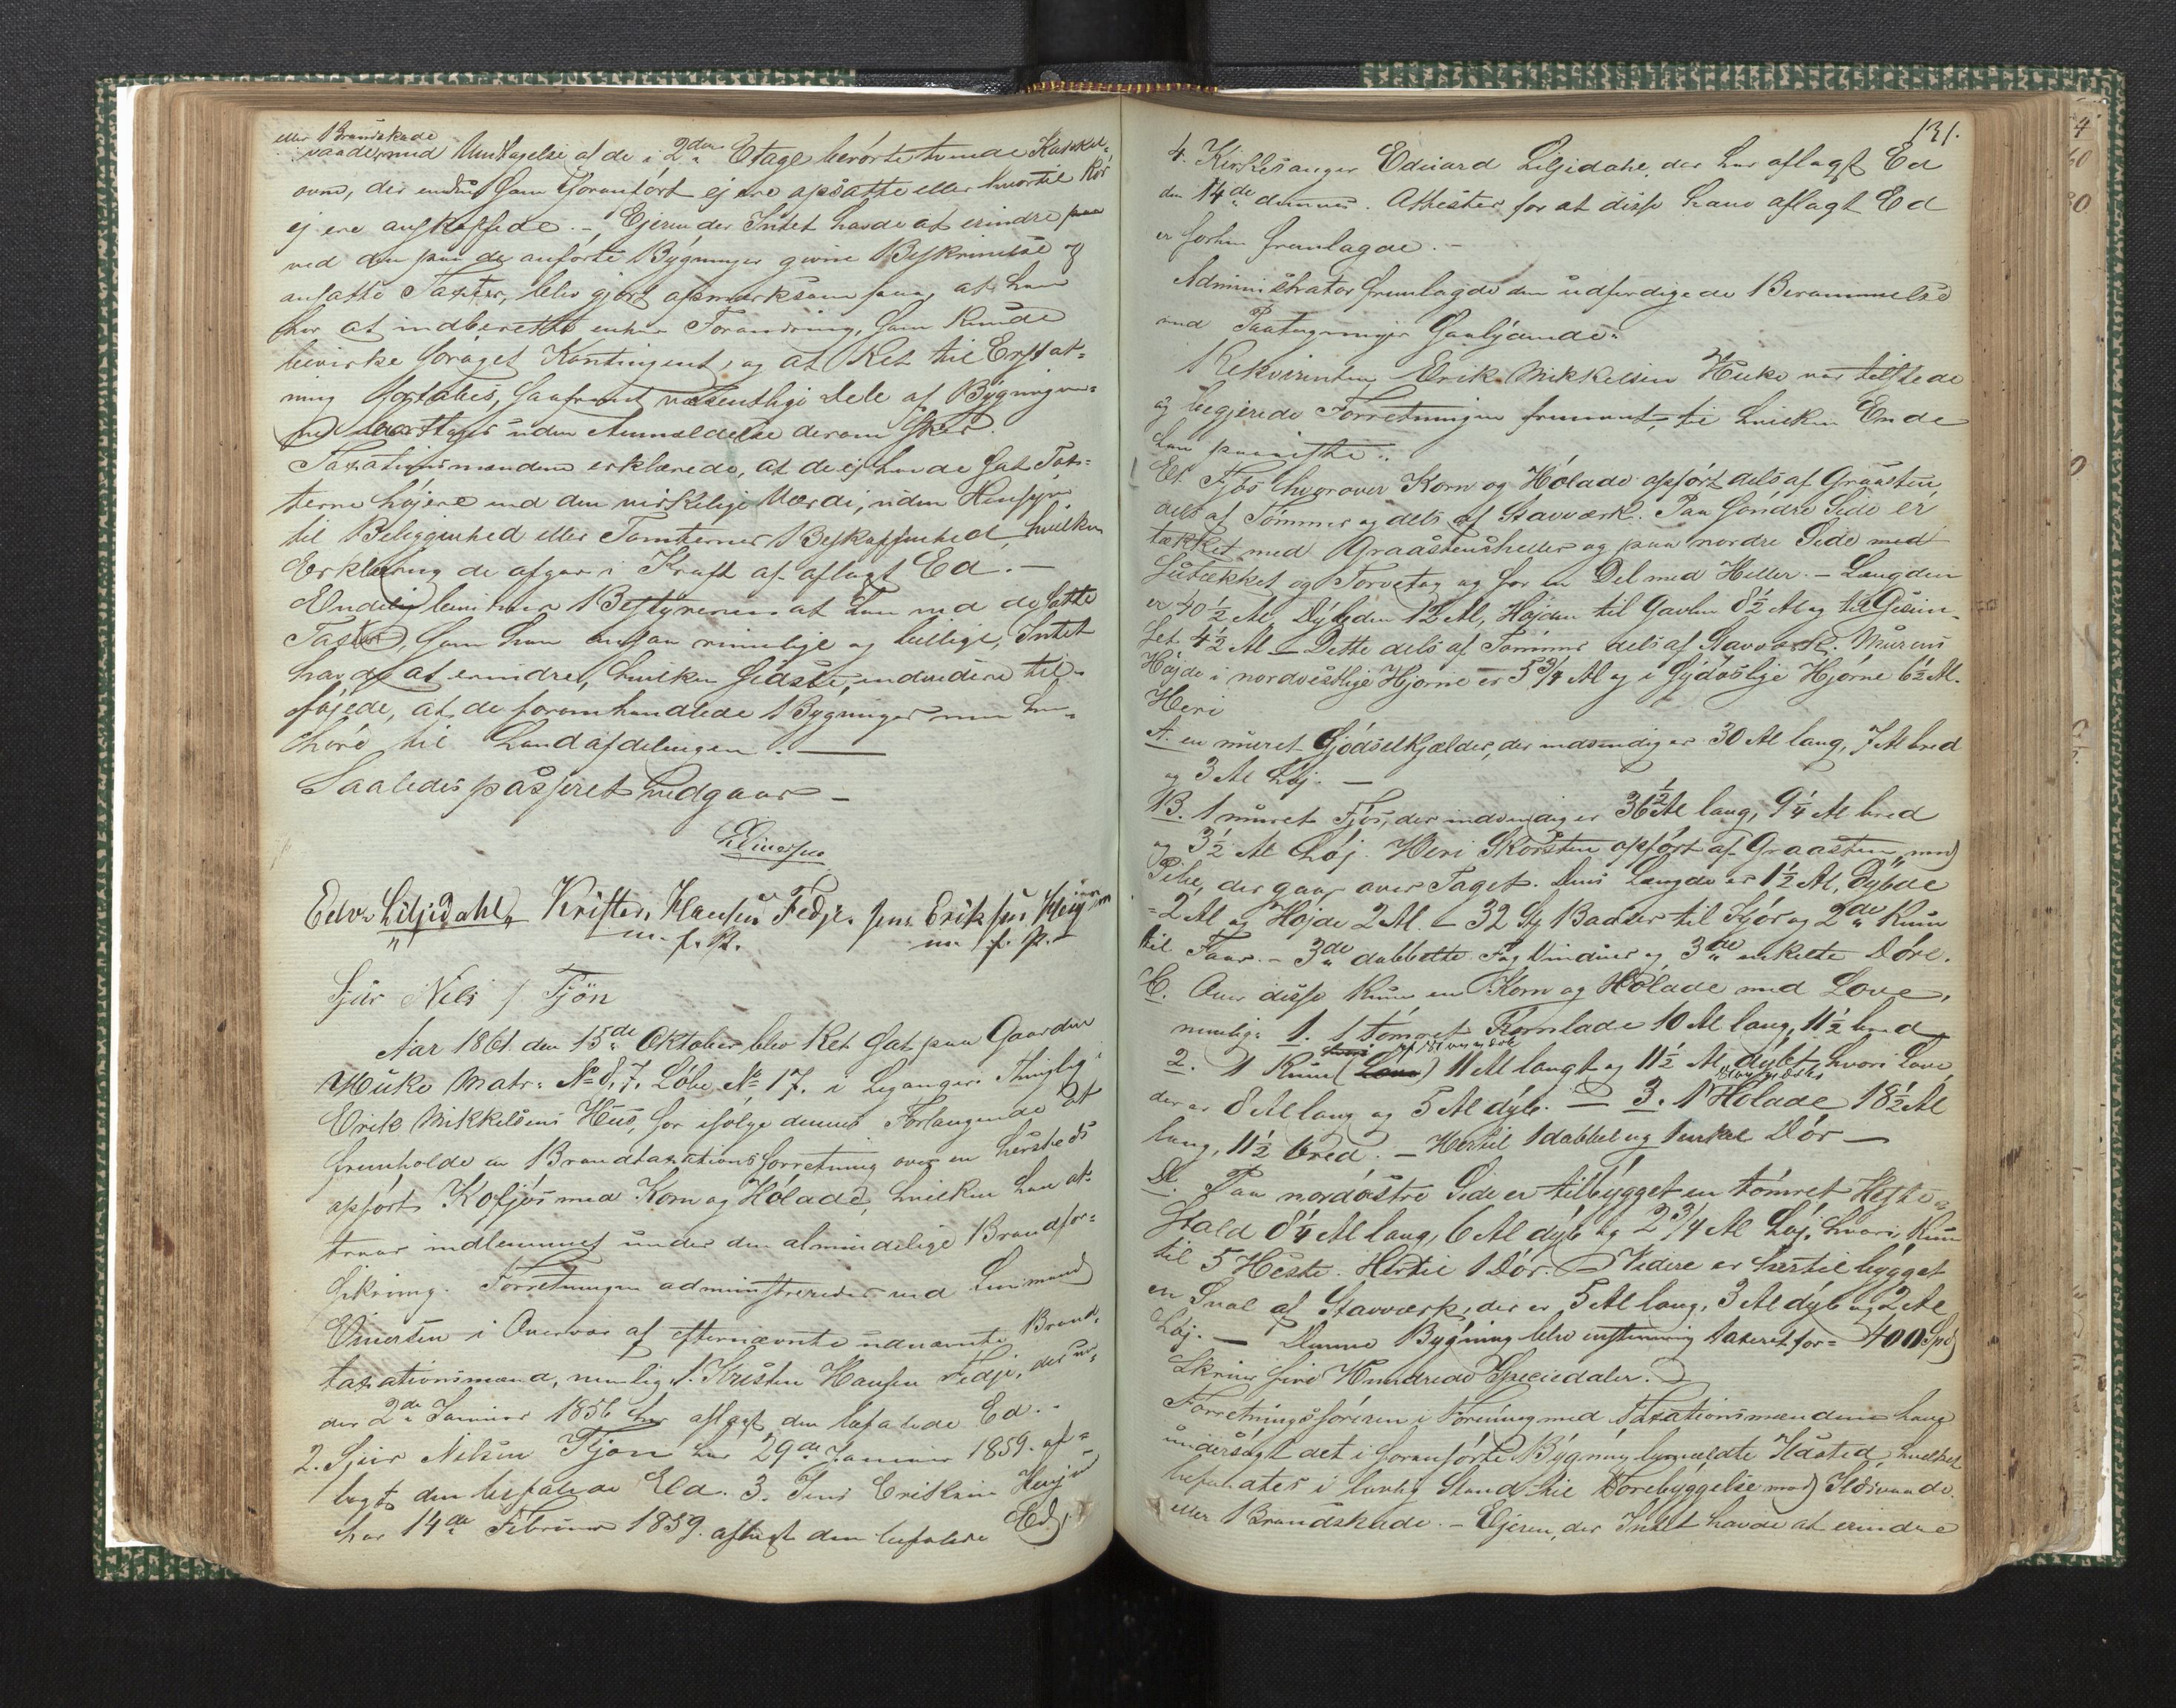 eller Brandskade
vaade, med Undtagelse af de i 2den Etage berørte tvende Kakkel-
ovne, der endnu som foranført ej ere opsatte eller hvortil Rør
ej ere anskaffede. – Ejeren der Intet havde at erindre paa
ved den paa de anførte Bygninger givne Beskrivelse og
ansatte Taxter, blev gjort opmærksom paa, at han
har at indberette enhver Forandring, som kunde
bevirke forøget Kontingent, og at Ret til Erstat-
ning fortabes, saafremt væsentlige Dele af Bygningerne
borttages uden Anmeldelse derom sker.
Taxationsmændene erklærede, at de ej havde sat Tax-
terne højere end den virkelige Værdi, uden Hensyn
til Beliggenhed eller Tomternes Beskaffenhed, hvilken
Erklæring de afgav i Kraft af aflagt Ed. –
Endelig bemærker Bestyreren at han ved de satte
Taxter, som han ansaa rimelige og billige, Intet
havde at erindre, hvilken sidste, endvidere til-
føjede, at de foromhandlede Bygninger maa hen-
høre til Landafdelingen. —
Saaledes passeret vedgaar –
Edv. Liljedahl Kristen Hansen Fedje. Jens Eriksen
m. f. P. m. f. P.
Sjur Nils / Tjøn
Aar 1861 den 15de Oktober blev Ret sat paa Gaarden
Huke Matr: No 8, 7. Løbe No 17. i Leganger Thinglag i
Erik Mikkelsens Hus, for ifølge dennes Forlangende at
fremholde en Brandtaxationsforretning over en hersteds
opført Kofjøs med Korn og Hølade, hvilken han at-
traar indlemmet under den almindelige Brandfor-
sikring. Forretningen administreredes ved Lensmand
i Overvær af efternævnte udnævnte Brand-
taxationsmænd, nemlig 1. Kristen Hansen Fedje, der un-
der 2de Januar 1856 har aflagt den befalede Ed. –
2. Sjur Nilsen Tjøn har 29de Januar 1859. af-
lagt den befalede Ed. 3. Jens Eriksen
har 14de Februar 1859. aflagt den befalede Ed,
131.
4. Kirkesanger Edvard Liljedahl, der har aflagt Ed
den 14de dennes. Attester for at disse have aflagt Ed
er forhen fremlagde. –
Administrator fremlagde den udfærdigede Berammelse
med Paategninger saalydende:
Rekvirenten Erik Mikkelsen Huke var tilstede
og begjerede Forretningen fremmet, til hvilken Ende
han paaviste:
Et Fjøs hvorover Korn og Hølade opført dels af Graasten,
dels af Tømmer og dels af Stavværk. Paa søndre Side er
tækket med Graastensheller og paa nordre Side med
og Torvetag og for en Del med Heller. – Længden
er 40 ½ Al, Dybden 12 Al, Højden til Gavlen 8½ Al og til Gesim-
set 4½ Al – Dette dels af Tømmer dels af Stavværk. Murens
Højde i nordvestlige Hjørne er 5 3/4 Al og i sydøstlige Hjørne 6½ Al.
Heri
A. en muret Gjødselkjælder, der indvendig er 30 Al lang, 7 Al bred
og 3 Al høj. –
B. 1 muret Fjøs, der indvendig er 36½ Al lang, 9¼ Al bred
og 3½ Al høj. Heri Skorsten opført af Graasten med
Pibe, der gaar over Taget. Dens Længde er 1½ Al, Dybde
2 Al og Højde 2 Al. – 32 Baaser til Kjør og 2de Rum
til Faar. – 3de dobbelte Fag Vinduer og 3de enkelte Døre.
C. Over disse Rum en Korn og Hølade med Love,
nemlig: 1. 1 tømret Kornlade 10 Al lang, 11½ bred
af Stavværk
2. 1 Rum (Love) 11 Al langt og 11½ Al dybt, hvori Love,
Stavværks
der er 8 Al lang og 5 Al dyb. – 3. 1 Hølade 18½ Al
lang, 11½ bred. – Hertil 1 dobbel og 1 enkel Dør –
D. Paa nordøstre Side er tilbygget en tømret Heste-
Stald 8¼ Al lang, 6 Al dyb og 2 3/4 Al høj, hvori Rum
til 5 Heste. Hertil 1 Dør. – Videre er hertil bygget
en Sval af Stavværk, der er 5 Al lang, 3 Al dyb og 2 Al
høj. – Denne Bygning blev enstemmig taxeret for = 400 Spd
skriver fire Hundrede Speciedaler.
Forretningsføreren i Forening med Taxationsmændene have
undersøgt det i foranførte Bygning bemeldte Ildsted, hvilket
befandtes i lovlig Stand til Forebyggelse mod Ildsvaade
eller Brandskade. – Ejeren, der Intet havde at erindre